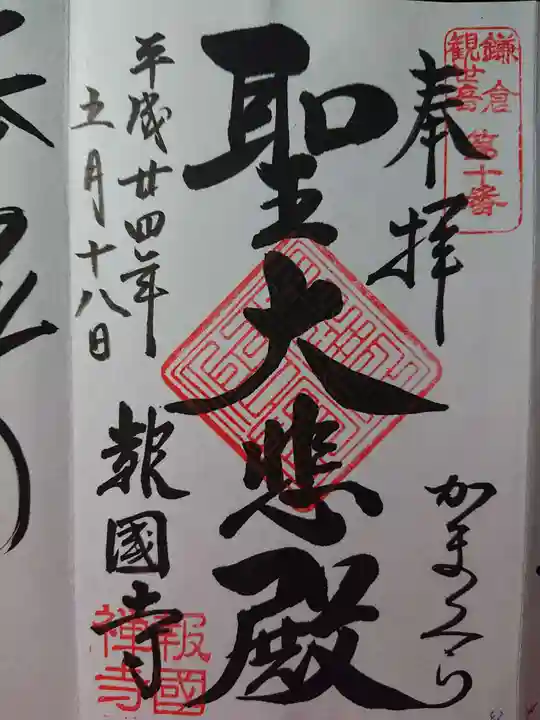 鎌倉
観世音
第十番
奉拝
かまくら
聖大悲殿
平成廿四年
五月十八日
報國寺
報國
禅寺